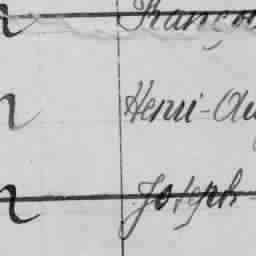 Françoi
n Henri-Au
n Joseph